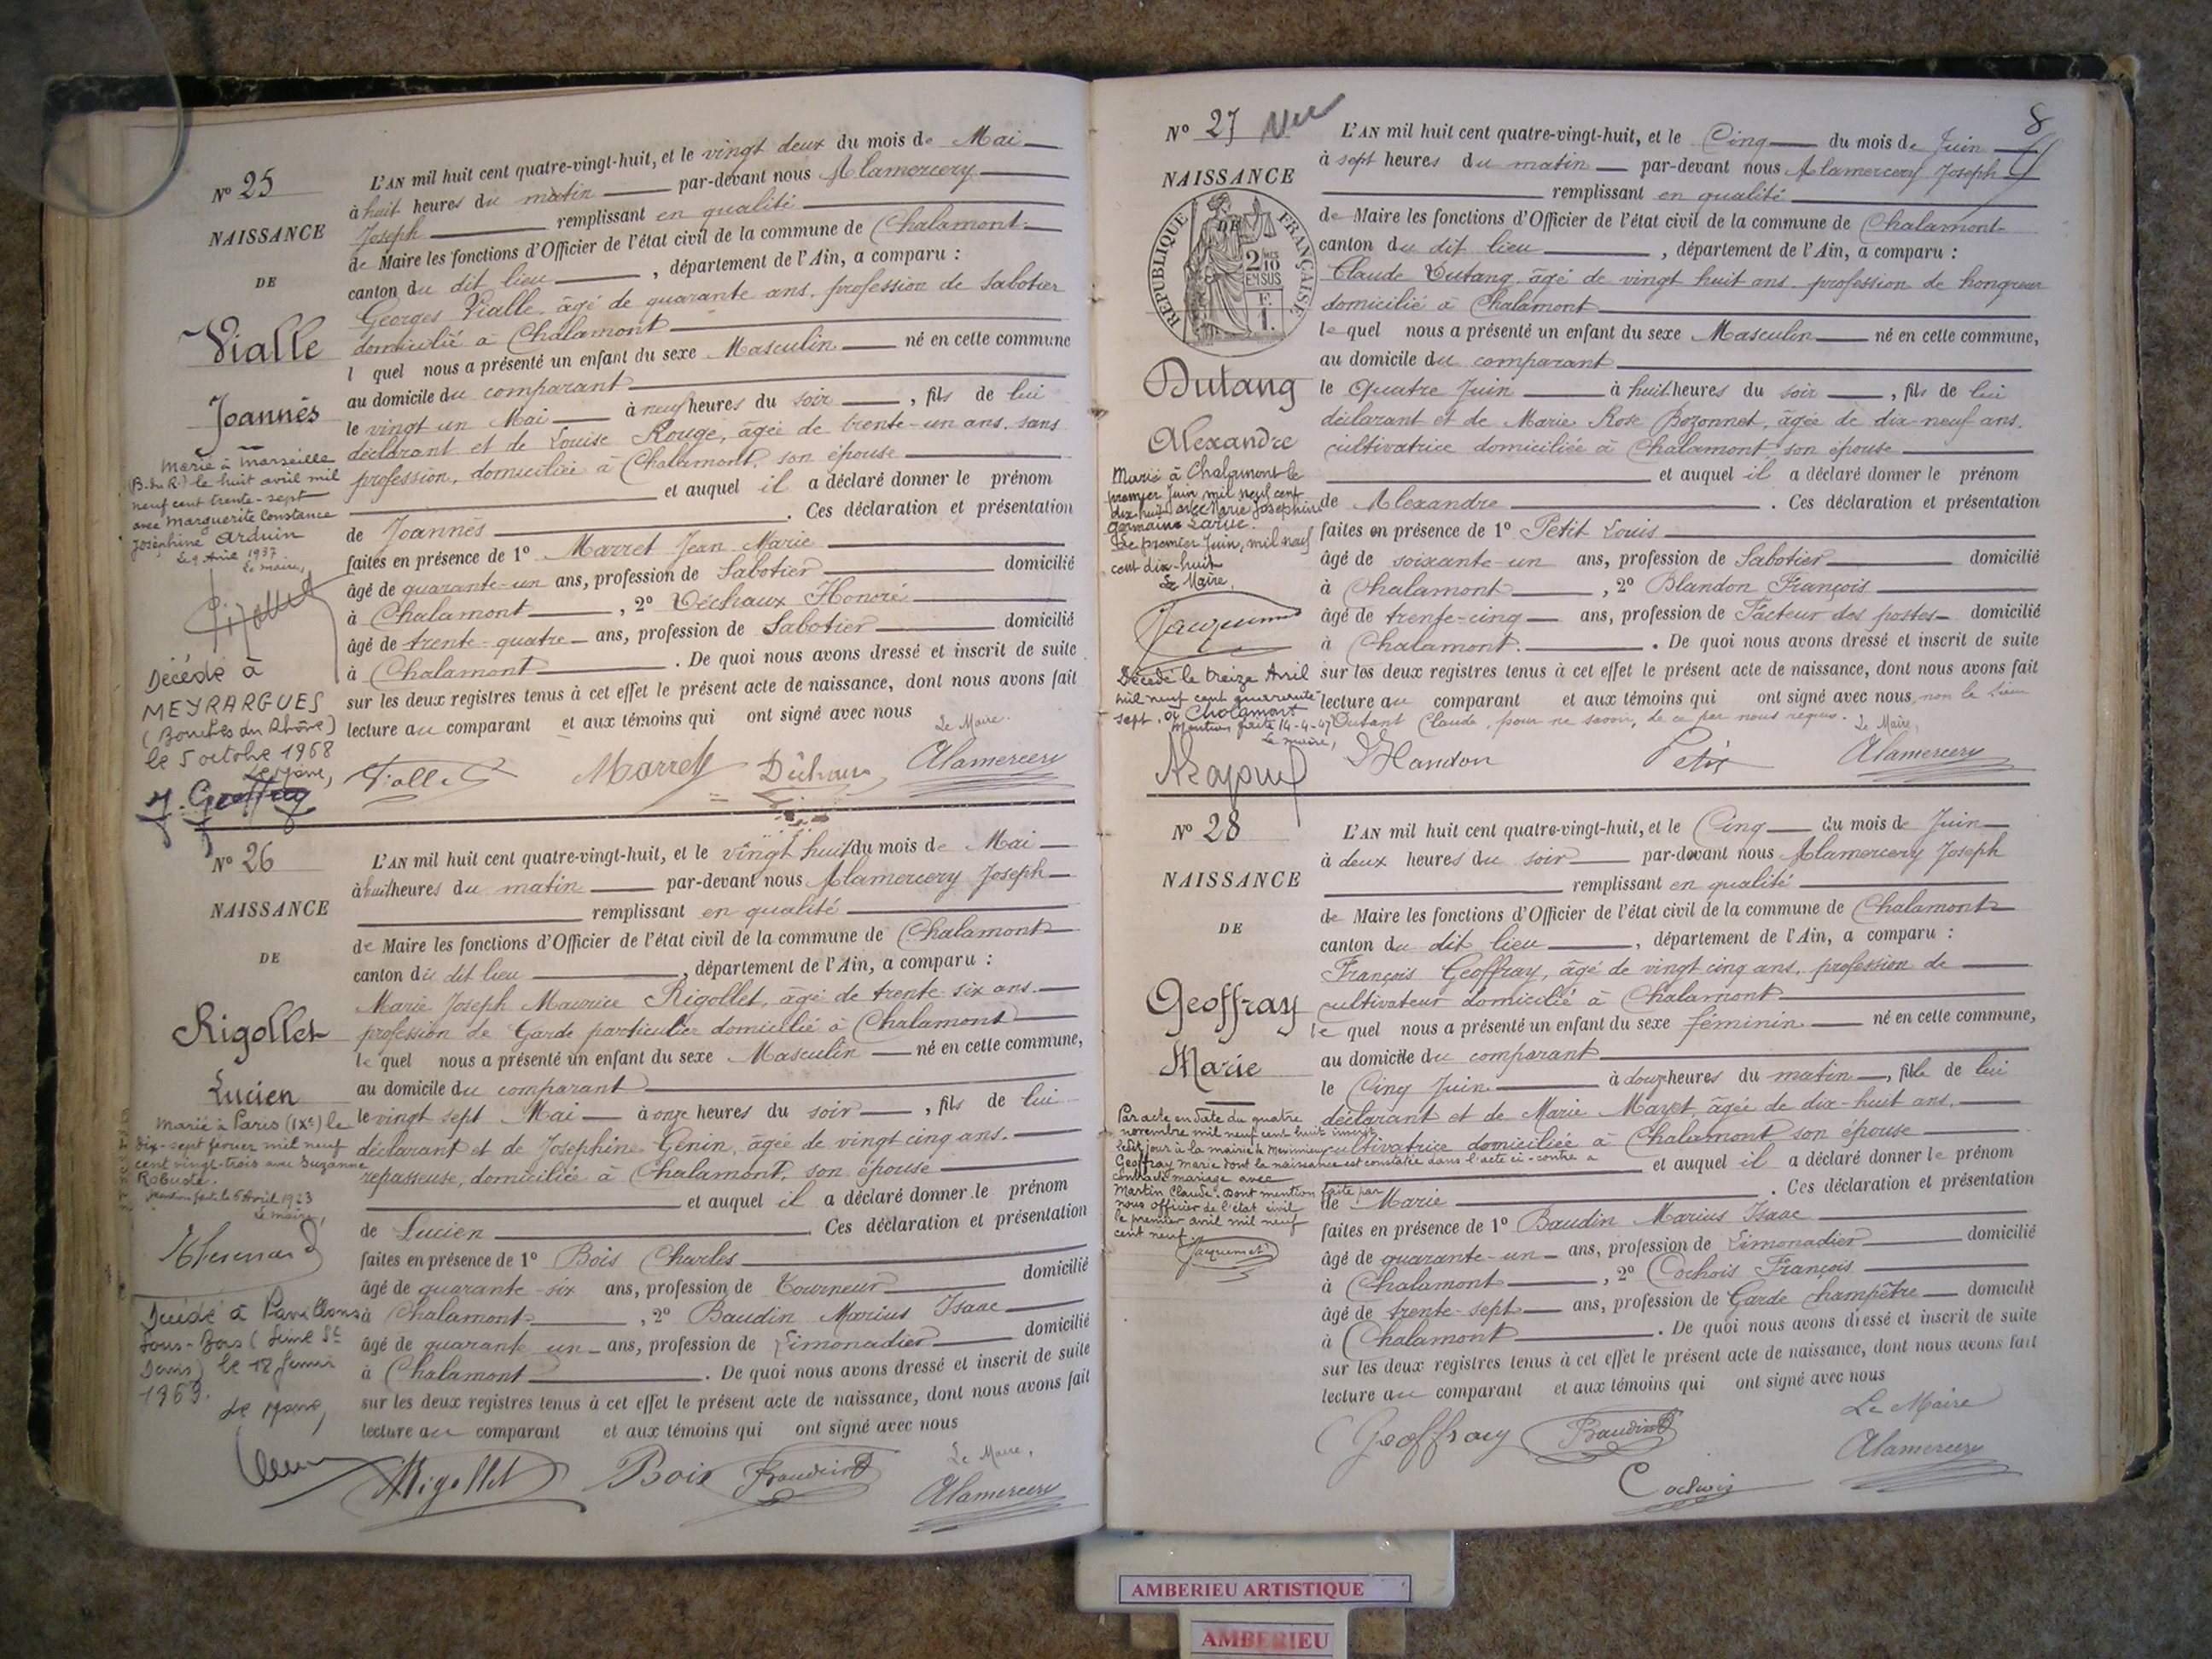 Nº 25
NAISSANCE
DE
Vialle
Joannès
Marié à Marseille
(B.du R.) le huit avril mil
neuf cent trente-sept
avec Marguerite Constance
Joséphine Arduin
Le 9 Avril 1937
Le maire,
Décédé à
MEYRARGUES
(Bouches du Rhône)
le 5 octobre 1968
Le Maire,
J. Geoffray
L'AN mil huit cent quatre-vingt-huit, et le vingt deux du mois de Mai
à huit heures du matin par-devant nous Alamercery
Joseph remplissant en qualité
de Maire les fonctions d'Officier de l'état civil de la commune de Chalamont
canton du dit lieu, département de l'Ain, a comparu :
Georges Vialle, âgé de quarante ans, profession de Sabotier
domicilié à Chalamont
l quel nous a présenté un enfant du sexe Masculin né en cette commune
au domicile du comparant
le vingt un Mai à neuf heures du soir, fils de lui
déclarant et de Louise Rouge, âgée de trente-un ans, sans
profession, domiciliée à Chalamont, son épouse
et auquel il a déclaré donner le prénom
de Joannès. Ces déclaration et présentation
faites en présence de 1º Marret Jean Marie
âgé de quarante-un ans, profession de Sabotier domicilié
à Chalamont, 2º Déchaux Honoré
âgé de trente-quatre ans, profession de Sabotier domicilié
à Chalamont. De quoi nous avons dressé et inscrit de suite
sur les deux registres tenus à cet effet le présent acte de naissance, dont nous avons fait
lecture au comparant et aux témoins qui ont signé avec nous
Le Maire.
Vialle Marret Déchaux Alamercery
Nº 26
NAISSANCE
DE
Rigollet
Lucien
Marié à Paris (IXe) le
dix-sept février mil neuf
cent vingt-trois avec Suzanne
Robuste.
Mention faite le 6 Avril 1923
Le maire,
Décédé à Pavillons
Sous-Bois (Seine St
Denis) le 18 février
1969.
Le Maire,
L'AN mil huit cent quatre-vingt-huit, et le vingt huit du mois de Mai
à huit heures du matin par-devant nous Alamercery Joseph
remplissant en qualité
de Maire les fonctions d'Officier de l'état civil de la commune de Chalamont
canton du dit lieu, département de l'Ain, a comparu :
Marie Joseph Maurice Rigollet, âgé de trente-six ans
profession de Garde particulier domicilié à Chalamont
le quel nous a présenté un enfant du sexe Masculin né en cette commune,
au domicile du comparant
le vingt sept Mai à onze heures du soir, fils de lui
déclarant et de Joséphine Génin, âgée de vingt cinq ans.
repasseuse, domiciliée à Chalamont, son épouse
et auquel il a déclaré donner le prénom
de Lucien Ces déclaration et présentation
faites en présence de 1º Bois Charles
âgé de quarante-six ans, profession de Tourneur domicilié
à Chalamont, 2º Baudin Marius Isaac
âgé de quarante un ans, profession de Limonadier domicilié
à Chalamont. De quoi nous avons dressé et inscrit de suite
sur les deux registres tenus à cet effet le présent acte de naissance, dont nous avons fait
lecture au comparant et aux témoins qui ont signé avec nous
Le Maire,
Rigollet Bois Baudin Alamercery
8
Nº 27 Vu
NAISSANCE
RÉPUBLIQUE FRANÇAISE
DE
2 MES
10
EN SUS
F.
1.
Dutang
Alexandre
Marié à Chalamont le
premier Juin mil neuf cent
dix-huit avec Marie Joséphine
Germaine Larue.
Le premier Juin, mil neuf
cent dix-huit
Le Maire,
Jacquemet
Décédé le treize Avril
mil neuf cent quarante
sept, à Chalamont
Mention faite 14-4-47
Le maire,
L'AN mil huit cent quatre-vingt-huit, et le Cinq du mois de Juin
à sept heures du matin par-devant nous Alamercery Joseph
remplissant en qualité
de Maire les fonctions d'Officier de l'état civil de la commune de Chalamont
canton du dit lieu, département de l'Ain, a comparu :
Claude Dutang, âgé de vingt huit ans, profession de hongreur
domicilié à Chalamont
le quel nous a présenté un enfant du sexe Masculin né en cette commune,
au domicile du comparant
le Quatre Juin à huit heures du soir, fils de lui
déclarant et de Marie Rose Bozonnet, âgée de dix-neuf ans.
cultivatrice domiciliée à Chalamont, son épouse
et auquel il a déclaré donner le prénom
de Alexandre. Ces déclaration et présentation
faites en présence de 1º Petit Louis
âgé de soixante-un ans, profession de Sabotier domicilié
à Chalamont, 2º Blandon François
âgé de trente-cinq ans, profession de Facteur des postes domicilié
à Chalamont. De quoi nous avons dressé et inscrit de suite
sur les deux registres tenus à cet effet le présent acte de naissance, dont nous avons fait
lecture au comparant et aux témoins qui ont signé avec nous, non le sieur
Dutant Claude, pour ne savoir, de ce par nous requis. Le Maire,
Blandon Petit Alamercery
Nº 28
NAISSANCE
DE
Geoffray
Marie
Par acte en date du quatre
novembre mil neuf cent huit inscrit
ledit jour à la mairie de Meximieux
Geoffray Marie dont la naissance est constatée dans l'acte ci-contre a
contracté mariage avec
Martin Claude. Dont mention faite par
nous officier de l'état civil
le premier avril mil neuf
cent neuf.
Jacquemet
L'AN mil huit cent quatre-vingt-huit, et le Cinq du mois de Juin
à deux heures du soir par-devant nous Alamercery Joseph
remplissant en qualité
de Maire les fonctions d'Officier de l'état civil de la commune de Chalamont
canton du dit lieu, département de l'Ain, a comparu :
François Geoffray, âgé de vingt cinq ans, profession de
cultivateur domicilié à Chalamont
le quel nous a présenté un enfant du sexe féminin né en cette commune,
au domicile du comparant
le Cinq Juin à douze heures du matin, fille de lui
déclarant et de Marie Mayet, âgée de dix-huit ans,
cultivatrice domiciliée à Chalamont son épouse
et auquel il a déclaré donner le prénom
de Marie. Ces déclaration et présentation
faites en présence de 1º Baudin Marius Isaac
âgé de quarante-un ans, profession de Limonadier domicilié
à Chalamont, 2º Cochois François
âgé de trente-sept ans, profession de Garde Champêtre domicilié
à Chalamont. De quoi nous avons dressé et inscrit de suite
sur les deux registres tenus à cet effet le présent acte de naissance, dont nous avons fait
lecture au comparant et aux témoins qui ont signé avec nous
Le Maire
Geoffray Baudin Alamercery
Cochois
AMBERIEU ARTISTIQUE
AMBERIEU